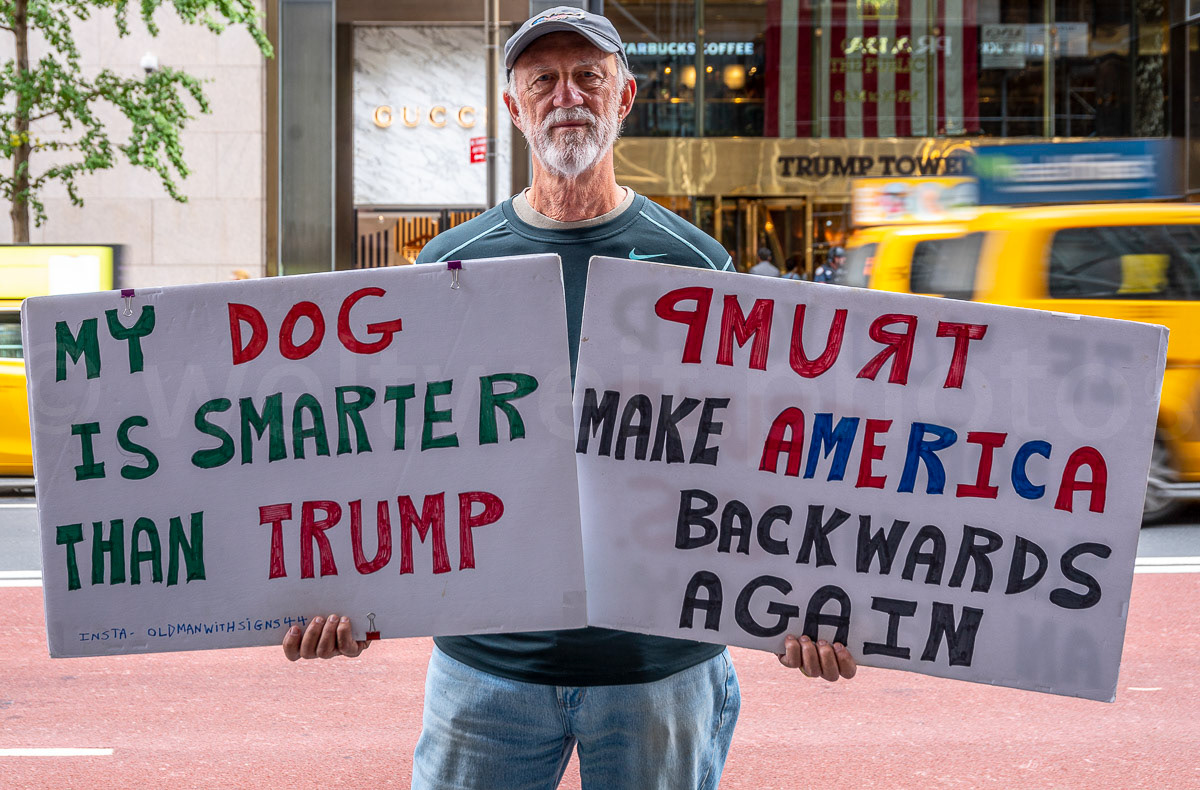 STARBUCKS COFFEE
GUCCI
THE PUBLIC
TRUMP TOWER
MY DOG
IS SMARTER
THAN TRUMP
INSTA- OLDMANWITHSIGNS44
PMURT
MAKE AMERICA
BACKWARDS
AGAIN